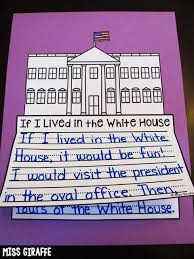 If I Lived in the White House
If I lived in the White
House, it would be fun!
I would visit the president
in the oval office. Then,
tours of the White House.
MISS GIRAFFE